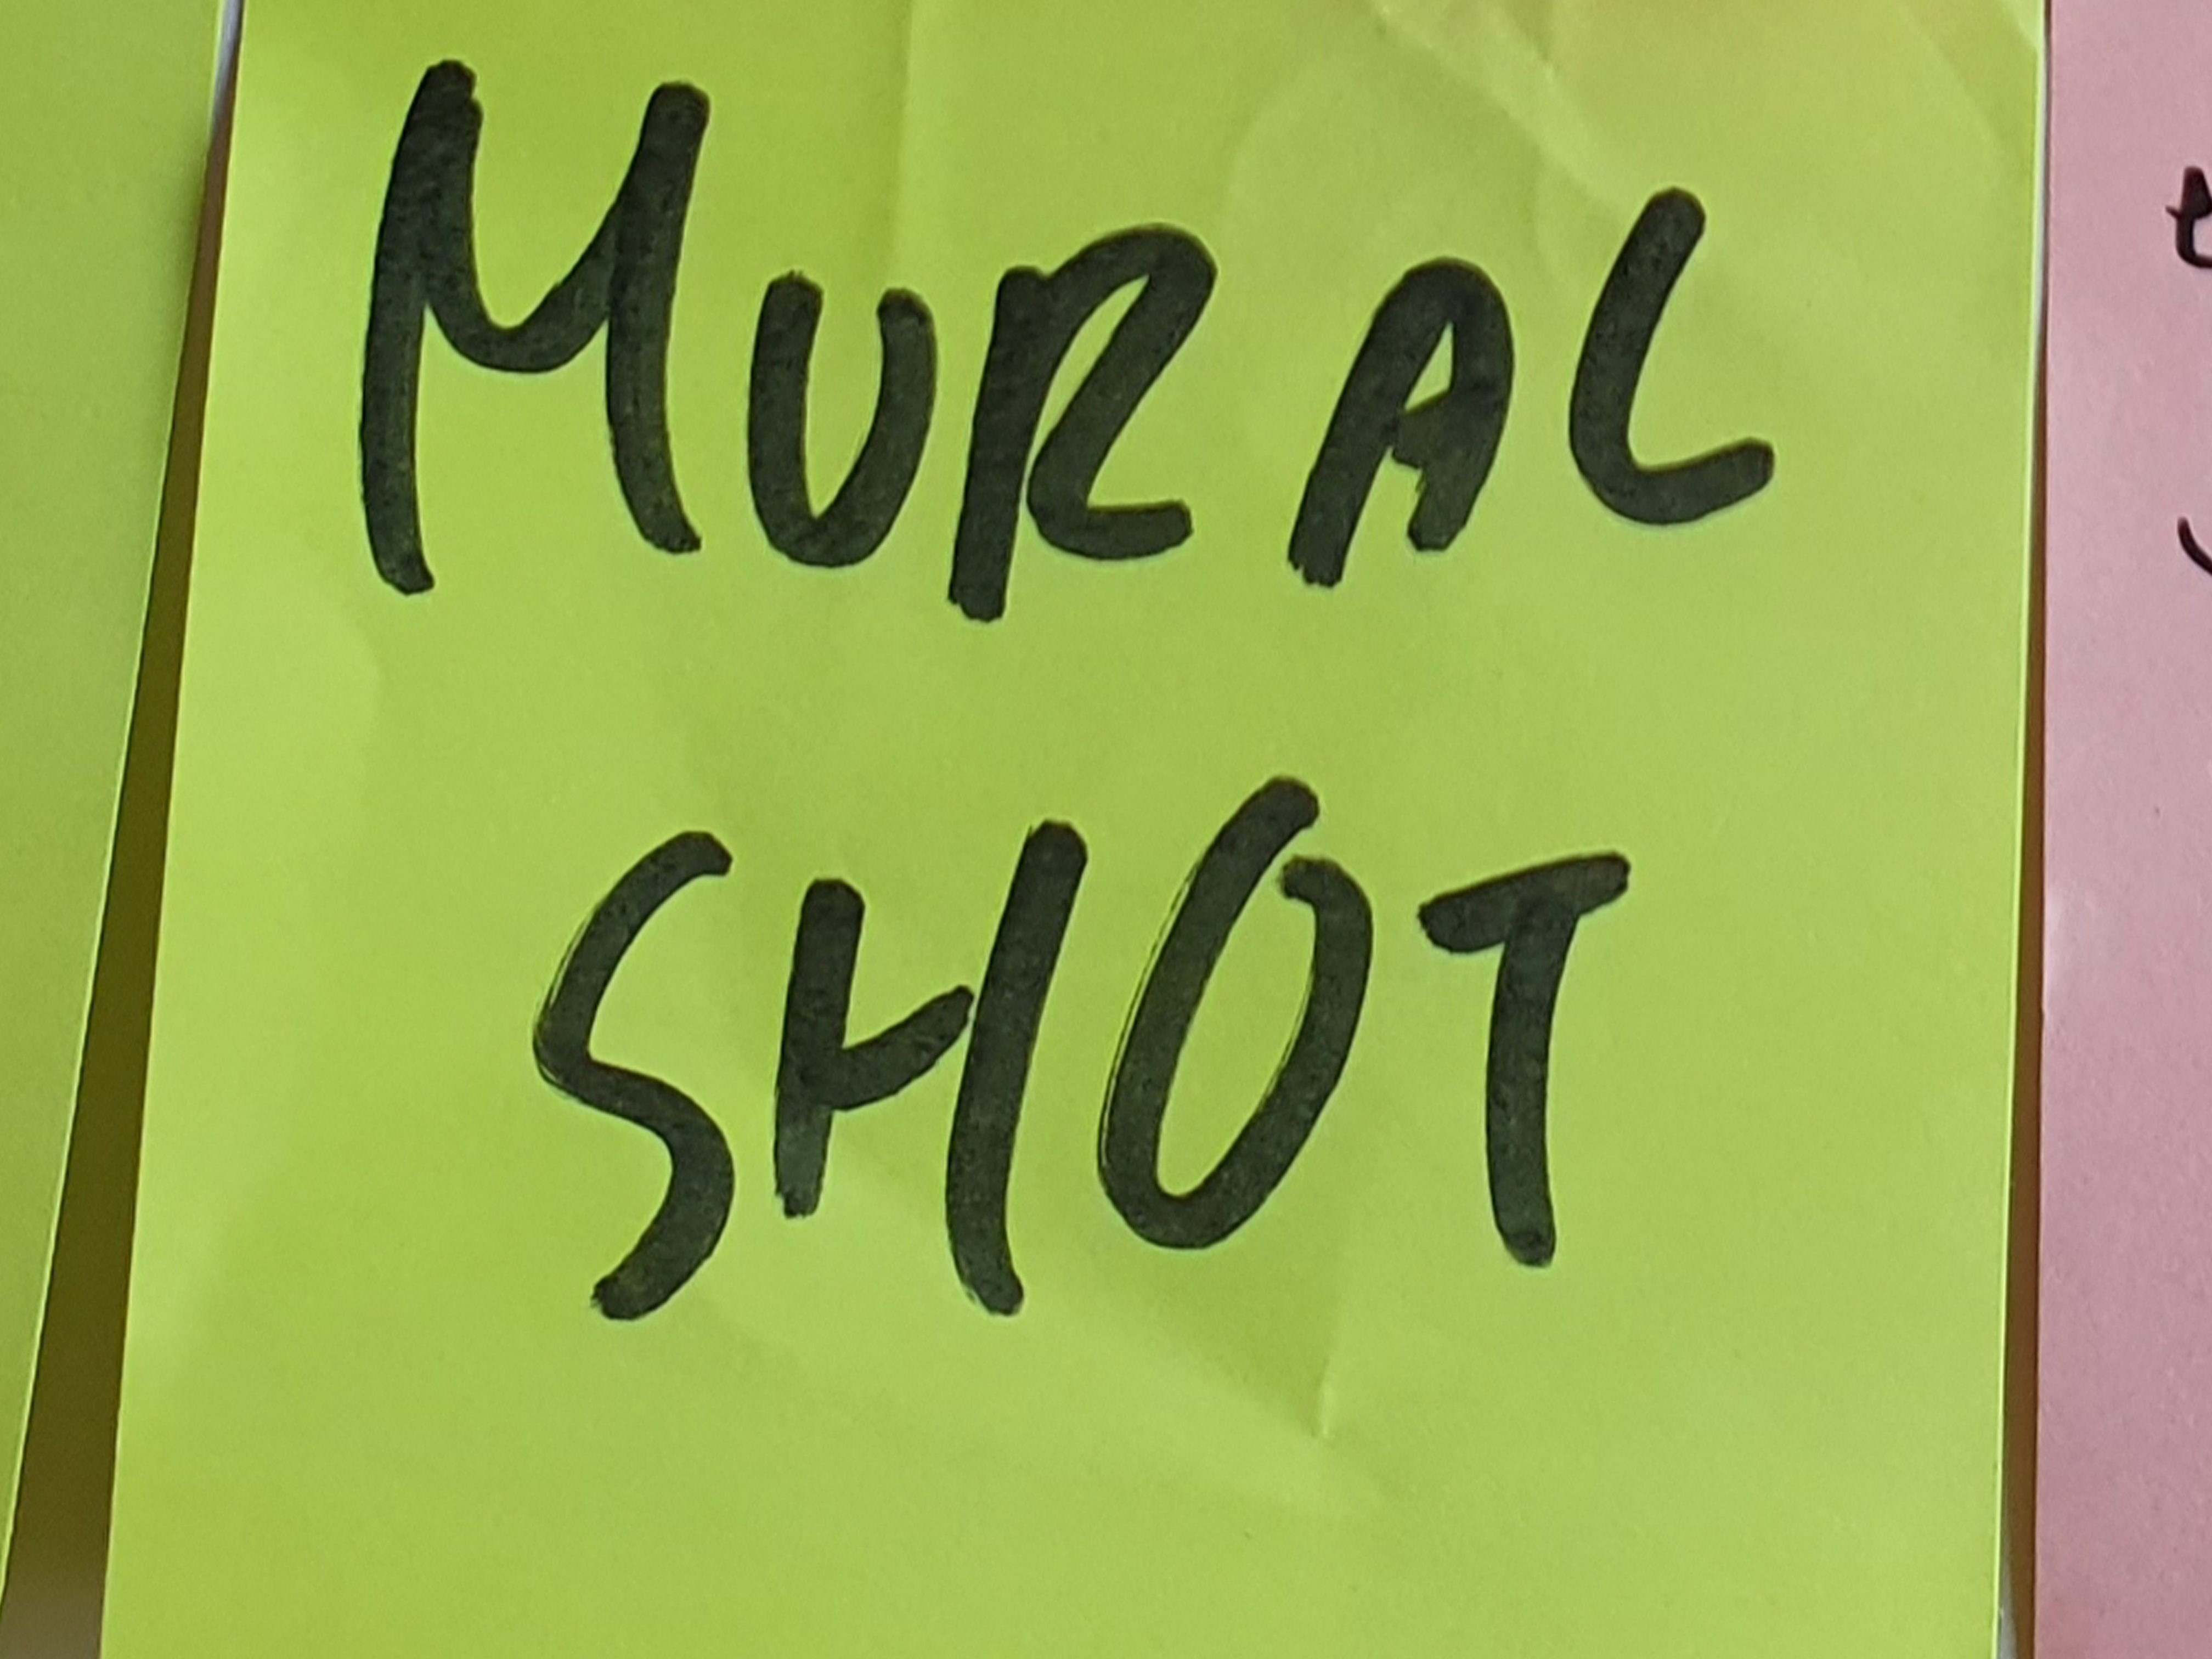 MURAL
SHOT